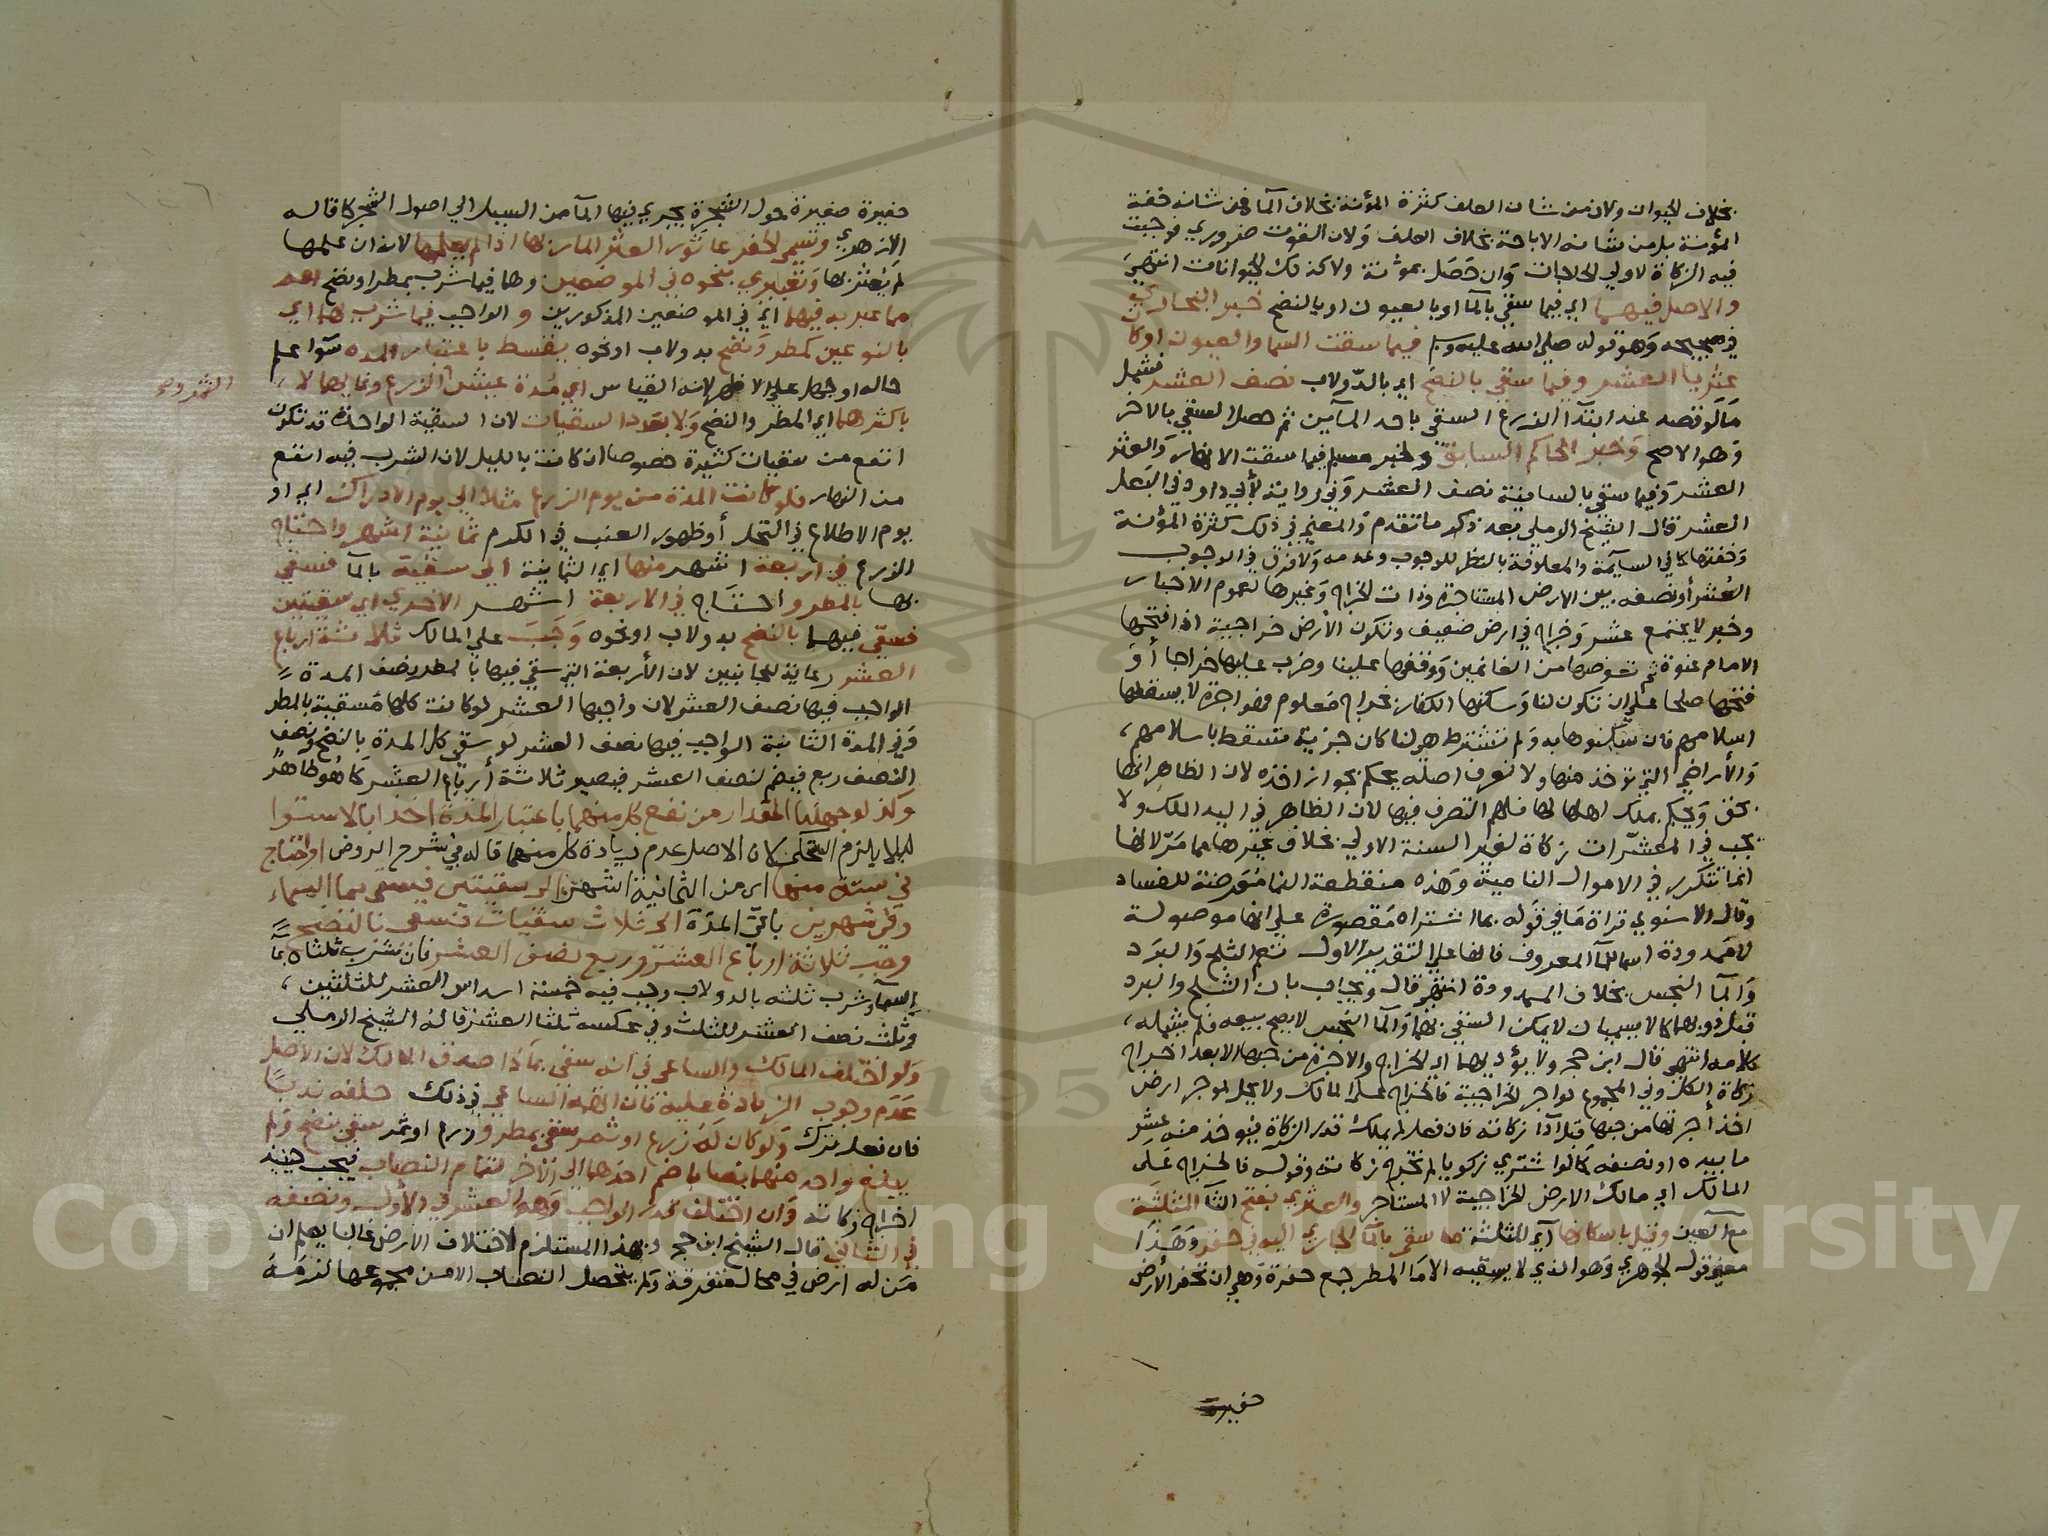 بخلاف الحيوان ولان من شان العلف كثرة المؤنة بخلاف الماء فمن شانه خفة
المؤنة بل من شانه الاباحة بخلاف العلف ولان القوت ضروري فوجبت
فيه الزكاة لاولي الحاجات وان حصل بمؤنة ولا كذلك الحيوانات انتهى
والاصل فيهما اي فيما سقي بالماء او بالعيون او بالنضح خبر البخاري
في صحيحه وهو قوله صلى الله عليه وسلم فيما سقت السما والعيون او كان
عثريا العشر وفيما سقي بالنضح اي بالدولاب نصف العشر فشمل
ما لو قصد عند ابتدا الزرع السقي باحد المآين ثم حصل السقي بالاخر
وهو الاصح وخبر الحاكم السابق ولخبر مسلم فيما سقت الانهار والعثر
العشر وفيما سقي بالسانية نصف العشر وفي رواية لأبي داود في البعل
العشر قال الشيخ الرملي بعد ذكر ما تقدم والمعنى في ذلك كثرة المؤنة
وخفتها كما في السآيمة والمعلوفة بالنظر للوجوب وعدمه ولا فرق في الوجوب
العشر أو نصفه بين الارض المستاجرة وذات الخراج وغيرها لعموم الاخبار
وخبر لا يجتمع عشر وخراج في ارض ضعيف وتكون الأرض خراجية اذا فتحها
الامام عنوة ثم تعوضها من الغانمين ووقفها علينا وضرب عليها خراجا أو
فتحها صلحا على ان تكون لنا وسكنها الكفار بخراج معلوم فهو اجرة لا يسقطها
اسلامهم فان سكنوها به ولم نشترط هو لنا كان جزية فتسقط باسلامهم،
والأراضي التي توخذ منها ولا نعرف اصله يحكم بجواز اخذه لان الظاهر انها
بحق ويحكم بملك اهلها لها فلهم التصرف فيها لان الظاهر في اليد الملك ولا
يجب في المعشرات زكاة لغير السنة الاولى بخلاف غيرها مما مر لانها
انما تتكرر في الاموال النامية وهذه منقطعة النما معرضة للفساد
وقال الاسنوي قراة ما في قوله بما اشتراه مقصورة على انها موصولة
لا ممدودة اسما للمآ المعروف فانها على التقدير الاول تعم الثلج والبرد
والمآ النجس بخلاف الممدودة انتهى قال ويجاب بان الثلج والبرد
قبل ذوبهما كالا يسميان لا يمكن السقي بهما والمآ النجس لا يصح بيعه فلم يشمله،
كلامه انتهى قال ابن حجر ولا يؤديهما اي الخراج والاجرة من حبها الا بعد اخراج
زكاة الكل وفي المجموع لو اجر الخراجية فالخراج على المالك ولا يحل لموجر ارض
اخذ أجرتها من حبها قبل آدا زكاته فان فعل لم يملك قدر الزكاة فيوخذ منه عشر
ما بيده او نصفه كما لو اشترى زكويا لم تخرج زكاته وقوله فالخراج على
المالك اي مالك الارض الخراجية لا المستاجر والعثري بفتح الثآ المثلثة
مع العين وقيل باسكانها آي المثلثة ما سقي بالمآ الجاري اليه في حفر وهذا
معنى قول الجوهري وهو الذي لا يسقيه الا ما المطر جمع حفرة وهي ان تحفر الأرض
حفيرة
حفيرة صغيرة حول الشجرة يجري فيها المآ من السيل الي اصول الشجر كما قاله
الأزهري وتسمى الحفر عاثورا لعثر المار بها اذا لم يعلمها لانه ان علمها
لم يعثر بها وتعبيري بنحوه في الموضعين وهما فيما شرب بمطر او نضح اعم
مما عبر به فيهما اي في الموضعين المذكورين و الواجب فيما شرب بهما اي
بالنوعين كمطر ونضح بدولاب او نحوه يقسط باعتبار المدة سوآ علم
حاله او جهل على الاظهر لانه القياس اي مدة عيش الزرع ونمائهما لا
الثمر وء
باكثرهما اي المطر والنضح ولا بعدد السقيات لان السقية الواحدة قد تكون
انفع من سقيات كثيرة خصوصا ان كانت بالليل لان الشرب فيه انفع
من النهار فلو كانت المدة من يوم الزرع مثلا الي يوم الادراك اي او
يوم الاطلاع في النخل أو ظهور العنب في الكرم ثمانية اشهر واحتاج
الزرع في اربعة اشهر منها اي الثمانية الى سقية بالمآ فسقي
بها بالمطر واحتاج في الاربعة اشهر الاخري اي سقيتين
فسقي فيهما بالنضح بدولاب او نحوه وجب على المالك ثلاثة ارباع
العشر رعاية للجانبين لان الأربعة التي سقي فيها بالمطر نصف المدة
الواجب فيها نصف العشر لان واجبها العشر لو كانت كلها مسقية بالمطر
وفي المدة الثانية الواجب فيها نصف العشر لو سقي كل المدة بالنضح ونصف
النصف ربع فيضم لنصف العشر فيصير ثلاثة أرباع العشر كما هو ظاهر
وكذ لو جهلنا المقدار من نفع كل منهما باعتبار المدة اخذا بالاستوا
ليلا يلزم التحكم لان الاصل عدم زيادة كل منهما قاله في شرح الروض او احتاج
في ستة منها اي من الثمانية اشهر الى سقيتين فيسقى بما السماء
وفي شهرين باقي المدة الى ثلاث سقيات فتسقى بالنضح
وجب ثلاثة ارباع العشر وربع نصف العشر فان شرب ثلثاه بما
السمآ وشرب ثلثه بالدولاب وجب فيه خمسة اسداس العشر للثلثين،
وثلث نصف العشر للثلث وفي عكسه ثلثا العشر قاله الشيخ الرملي
ولو اختلف المالك والساعي في انه سقى بماذا صدق المالك لان الأصل
عدم وجوب الزيادة عليه فان اتهمه الساعي في ذلك حلفه ندبا
فان نعله ترك ولو كان له زرع او ثمر سقي بمطر وزرع او ثمر سقي بنضح ولم
يبلغ واحد منهما نصابا ضم احدهما الى الاخر لتمام النصاب فيجب حينيد
اخراج زكاته وان اختلف قدر الواجب وهو العشر في الأول ونصفه
في الثاني قال الشيخ ابن حجر وبهذا المستلزم لاختلاف الأرض غالبا يعلم ان
من له ارض في محال متفرقة ولم يتحصل النصاب الا من مجموعها لزمه
Copyright © King Saud University